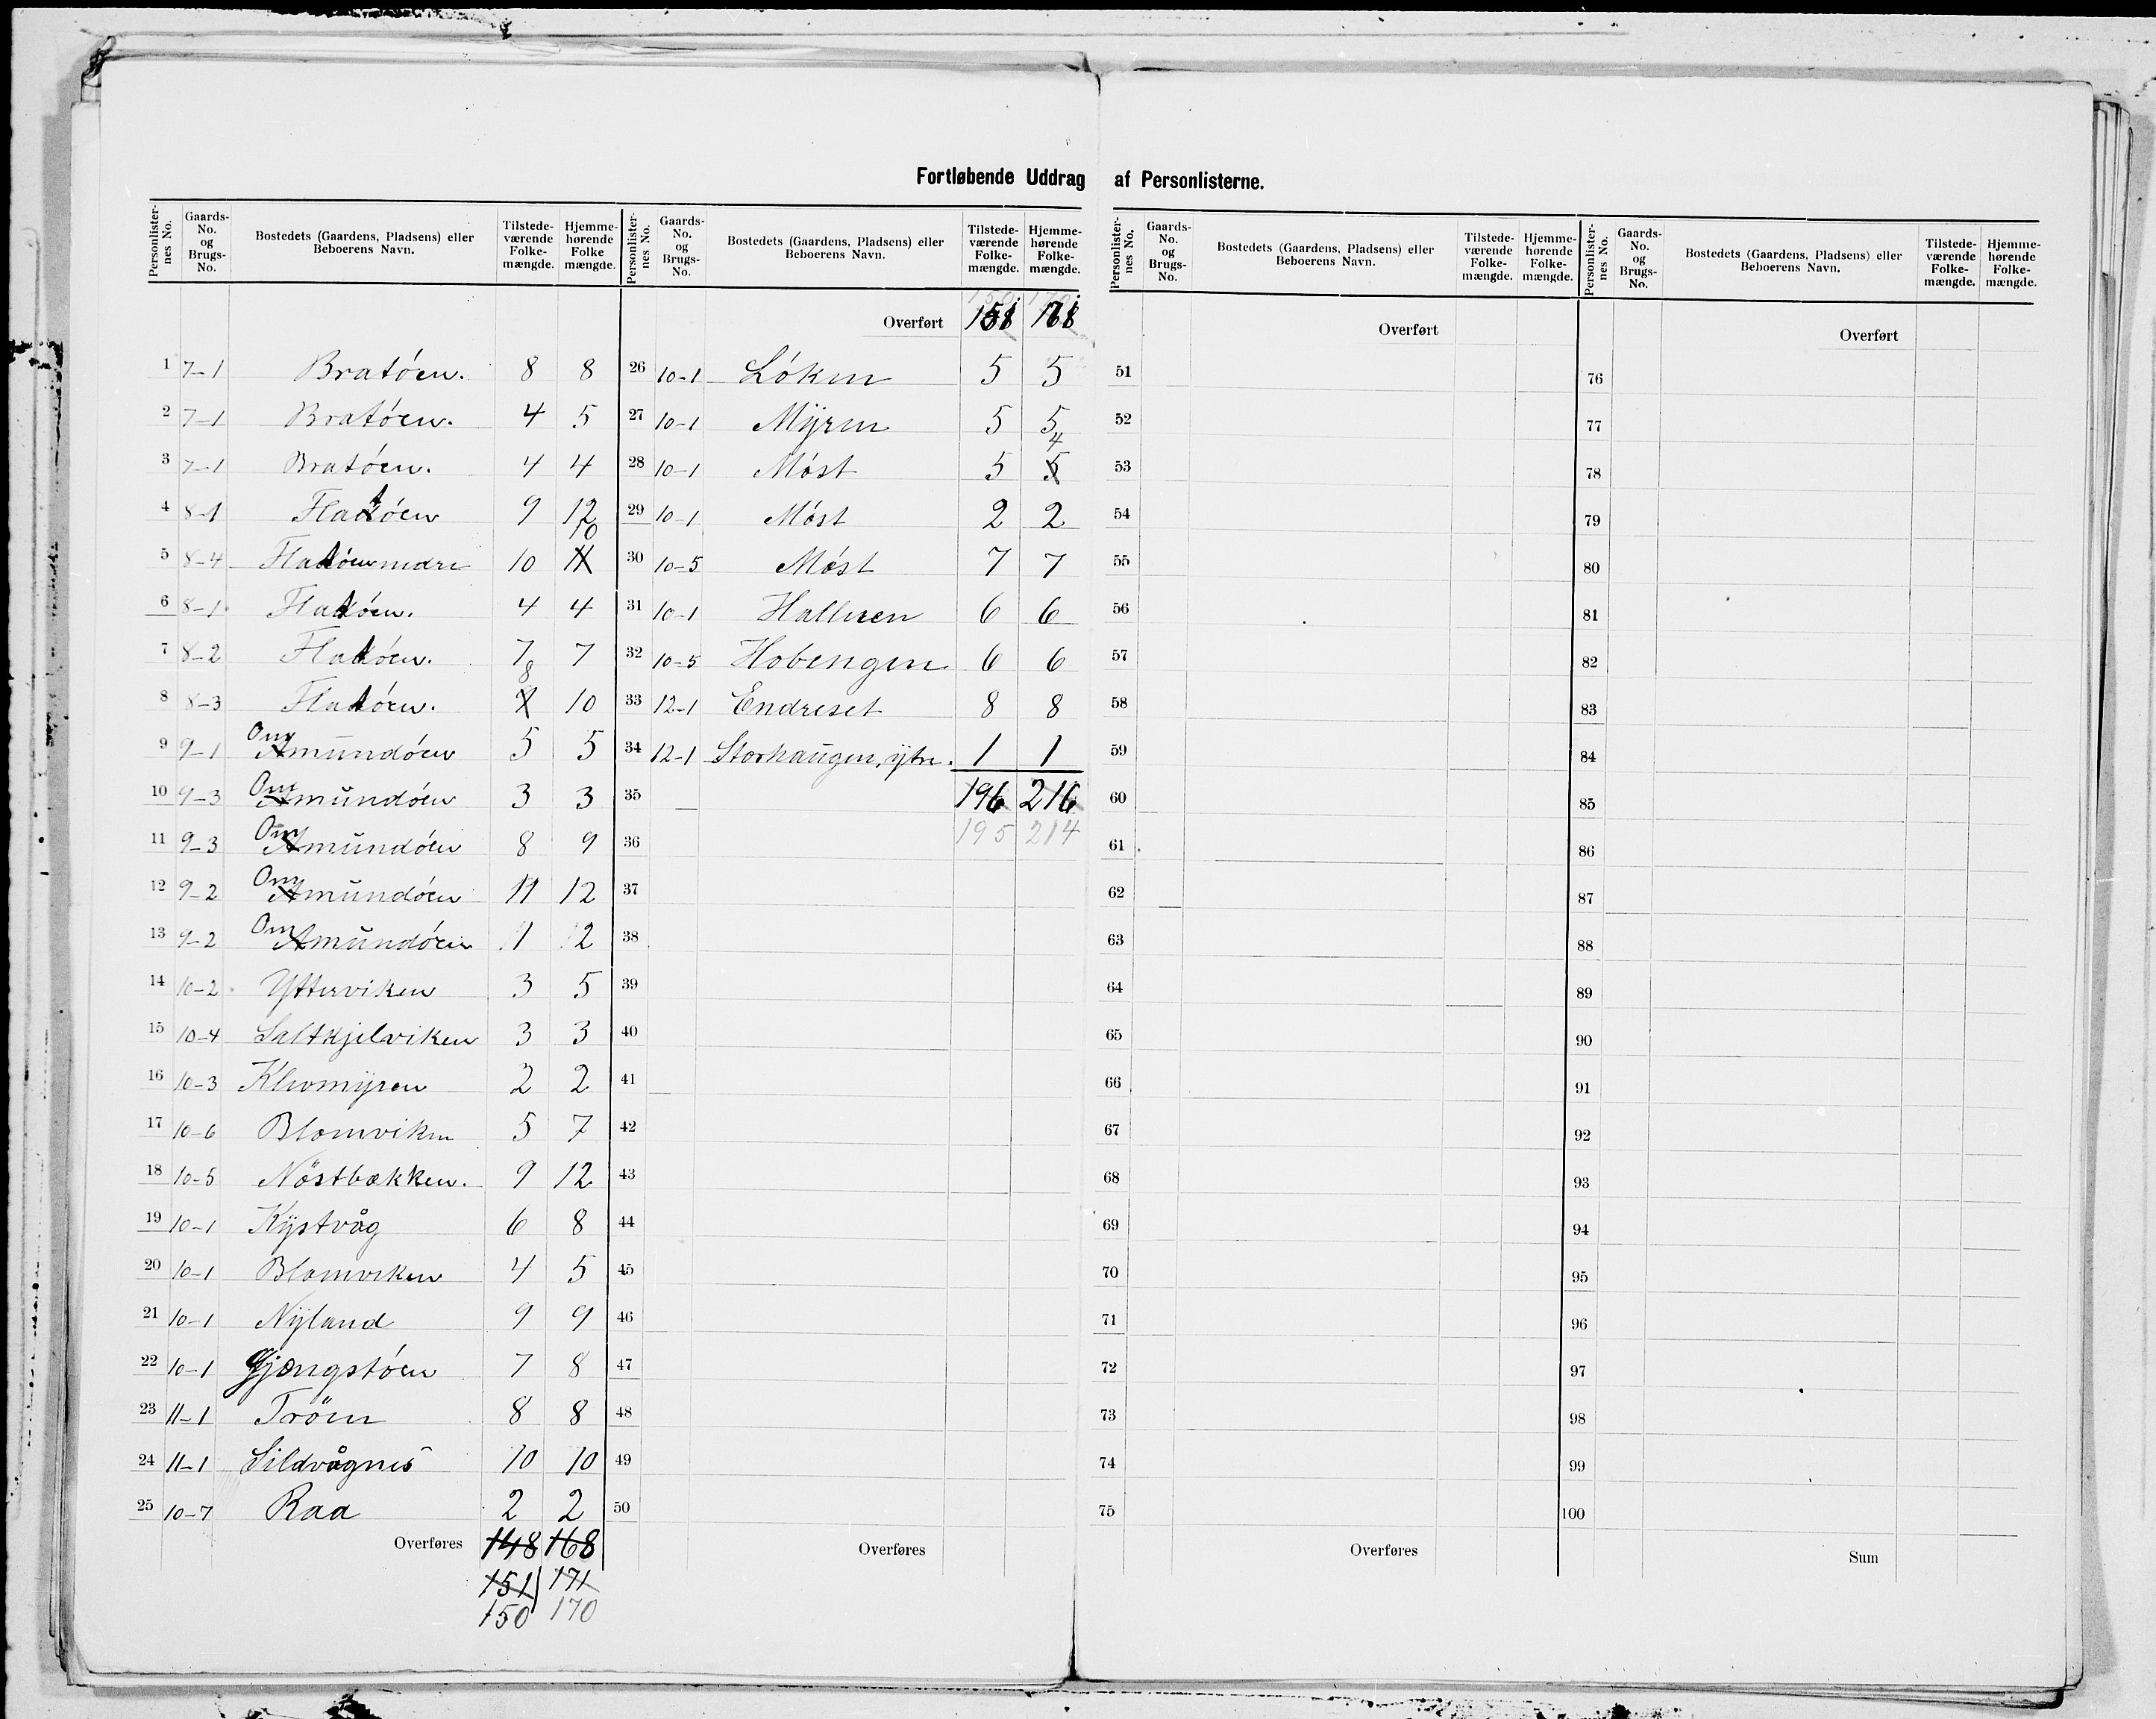 Fortløbende Uddrag af Personlisterne.
Personlister- nes No. | Gaards- No. og Brugs- No. | Bostedets (Gaardens, Pladsens) eller Beboerens Navn. | Tilstede- værende Folke- mængde. | Hjemme- hørende Folke mængde.
1 7-1 Bratóen. 8 8
2 7-1 Bratóen. 4 5
3 7-1 Bratóen. 4 4
4 8-1 Flatóen 9 12
5 8-4 Flatóen nedre 10 11 10
6 8-1 Flatóen. 4 4
7 8-2 Flatóen. 7 7
8 8-3 Flatóen. 8 10
9 9-1 Om Amundóen 5 5
10 9-3 Om Amundóen 3 3
11 9-3 Om Amundóen 8 9
12 9-2 Om Amundóen 11 12
13 9-2 Om Amundóen 1 2
14 10-2 Ytterviken 3 5
15 10-4 Saltkjelviken 3 3
16 10-3 Klevmyren 2 2
17 10-6 Blomviken 5 7
18 10-5 Nöstbækken. 9 12
19 10-1 Kystvåg 6 8
20 10-1 Blomviken 4 5
21 10-1 Nyland 9 9
22 10-1 Gjængstóen 7 8
23 11-1 Tröen 8 8
24 11-1 Sildvågnes 10 10
25 10-7 Raa 2 2
Overføres 148 168
151 171
150 170
Personlister- nes No. | Gaards- No. og Brugs- No. | Bostedets (Gaardens, Pladsens) eller Beboerens Navn. | Tilstede- værende Folke- mængde. | Hjemme- hørende Folke- mængde.
150 170
Overført 151 171
26 10-1 Lóken 5 5
27 10-1 Myren 5 5
28 10-1 Móst 5 5 4
29 10-1 Móst 2 2
30 10-5 Móst 7 7
31 10-1 Halluen 6 6
32 10-5 Hobengen 6 6
33 12-1 Endreset 8 8
34 12-1 Storhaugen, ytre. 1 1
35 196 216
36 195 214
37
38
39
40
41
42
43
44
45
46
47
48
49
50
Overføres
Personlister- nes No. | Gaards- No. og Brugs- No. | Bostedets (Gaardens, Pladsens) eller Beboerens Navn. | Tilstede- værende Folke- mængde. | Hjemme- hørende Folke- mængde.
Overført
51
52
53
54
55
56
57
58
59
60
61
62
63
64
65
66
67
68
69
70
71
72
73
74
75
Overføres
Personlister- nes No. | Gaards- No. og Brugs- No. | Bostedets (Gaardens, Pladsens) eller Beboerens Navn. | Tilstede- værende Folke- mængde. | Hjemme- hørende Folke- mængde.
Overført
76
77
78
79
80
81
82
83
84
85
86
87
88
89
90
91
92
93
94
95
96
97
98
99
100
Sum